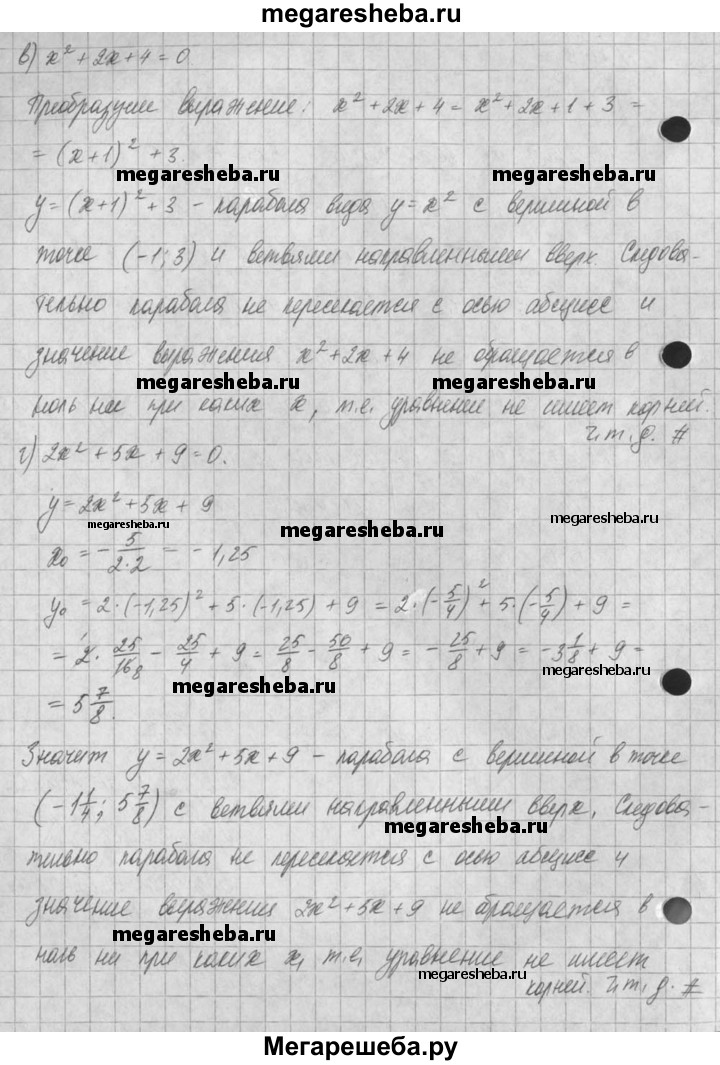 megaresheba.ru
в) x² + 2x + 4 = 0
Преобразуем выражение: x² + 2x + 4 = x² + 2x + 1 + 3 =
= (x+1)² + 3.
megaresheba.ru megaresheba.ru
y = (x+1)² + 3 – парабола вида y = x² с вершиной в
точке (-1; 3) и ветвями направленными вверх. Следова-
тельно парабола не пересекается с осью абсцисс и
значение выражения x² + 2x + 4 не обращается в
megaresheba.ru megaresheba.ru
ноль ни при каких x, т.е. уравнение не имеет корней.
ч.т.д. #
г) 2x² + 5x + 9 = 0.
y = 2x² + 5x + 9
megaresheba.ru megaresheba.ru megaresheba.ru
x₀ = - 5/(2·2) = -1,25
y₀ = 2·(-1,25)² + 5·(-1,25) + 9 = 2·(-5/4)² + 5·(-5/4) + 9 =
= 2· 25/16 8 - 25/4 + 9 = 25/8 - 50/8 + 9 = - 25/8 + 9 = -3 1/8 + 9 =
megaresheba.ru megaresheba.ru
= 5 7/8.
Значит y = 2x² + 5x + 9 – парабола с вершиной в точке
(-1 1/4; 5 7/8) с ветвями направленными вверх. Следова-
megaresheba.ru
тельно парабола не пересекается с осью абсцисс и
значение выражения 2x² + 5x + 9 не обращается в
megaresheba.ru
ноль ни при каких x, т.е. уравнение не имеет
megaresheba.ru
корней. ч.т.д. #
Мегарешеба.ру